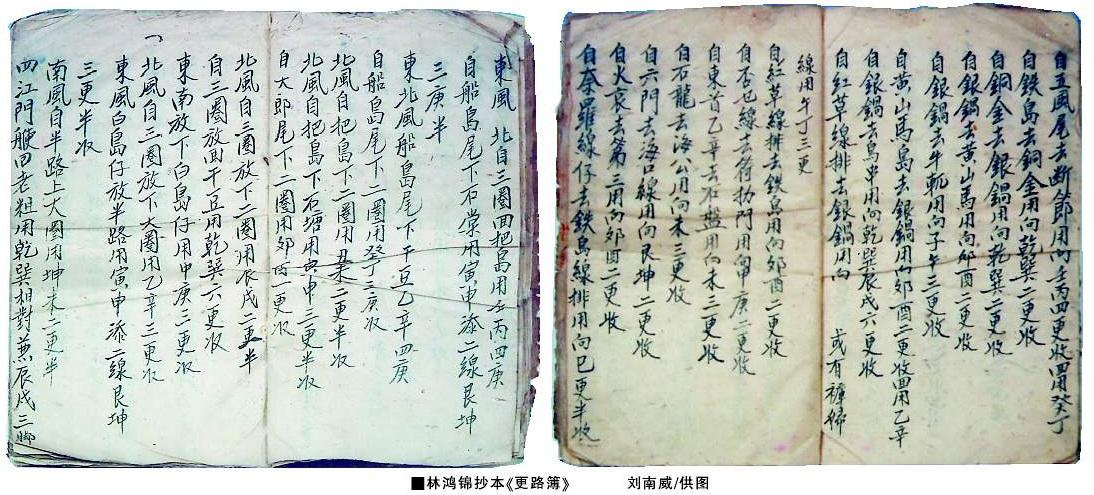 自五風尾去断節用向壬丙四更收四用癸丁
自鉄島去銅金用向乾巽二更收
自銅金去銀鍋用向乾巽二更收
自銀鍋去黄山馬用向夘酉二更收
自銀鍋去牛軛用向子午三更收
自黄山馬島去銀鍋用向夘酉二更收四用乙辛
自銀鍋去鳥串用向乾巽辰戌六更收
自紅草線排去銀鍋用向 或有
線用午丁三更
自紅草線排去鉄島用向夘酉二更收
自否也線去符扐門用向申庚二更收
自東首乙辛去石盤用向未三更收
自石龍去海公用向未三更收
自六門去海口線用向艮坤二更收
自火哀去第三用向夘酉二更收
自奈羅線仔去鉄島線排用向巳更半收
東風 北自三圈回把島用壬丙四庚
自船島尾下石棠用寅申添二線艮坤
三庚半
東北風船島尾下干豆乙辛四庚
自船島尾下二圈用癸丁三庚收
北風自把島下二圈用 二更半收
北風自把島下石塘用寅申三更半收
自大郎尾下二圈用夘酉一更收
北風自三圈放下二圈用辰戌二更半
自三圈放回干豆用乾巽六更收
東南放下白島仔用申庚三更收
北風自三圈放下大圈用乙辛三更收
東風白島仔放半路用寅申添二線艮坤
三更半收
南風自半路上大圈用坤未二更半
四江門艘回老粗用乾巽相對兼辰戌三
■林鸿锦抄本《更路簿》 刘南威/供图